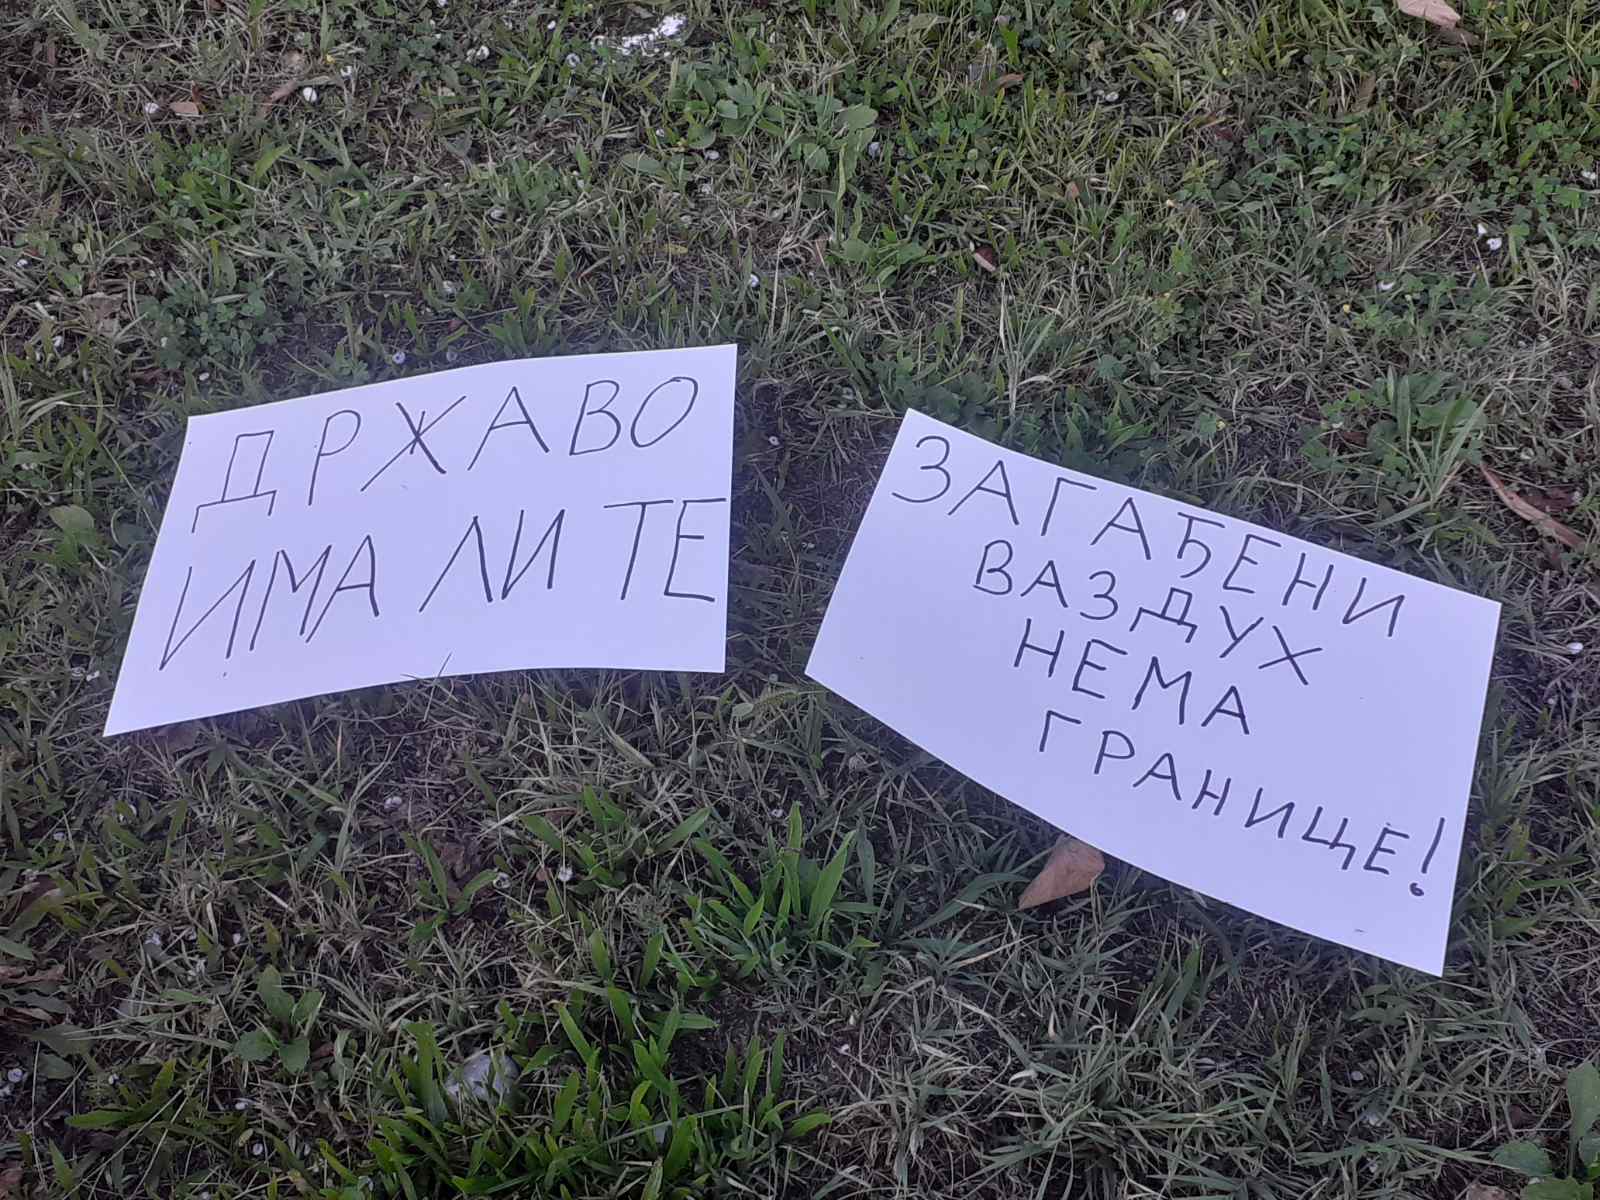 ДРЖАВО
ИМА ЛИ ТЕ
ЗАГАЂЕНИ
ВАЗДУХ
НЕМА
ГРАНИЦЕ!